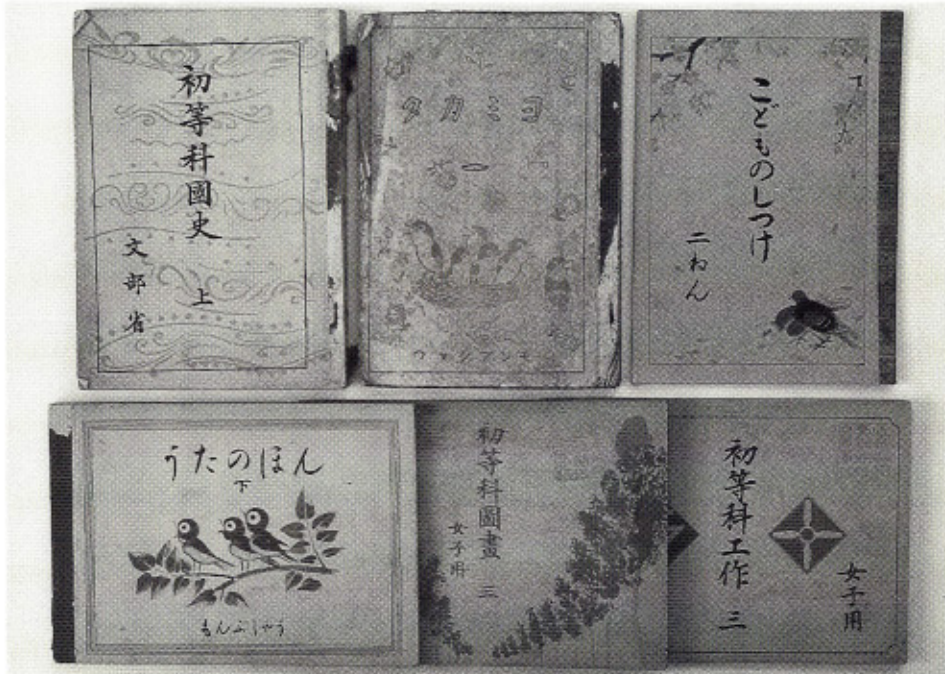 初等科國史 上
文部省
ヨミカタ
一
モンブシャウ
こどものしつけ
二ねん
うたのほん
下
もんぶしやう
初等科圖畫 三
女子用
初等科工作 三
女子用